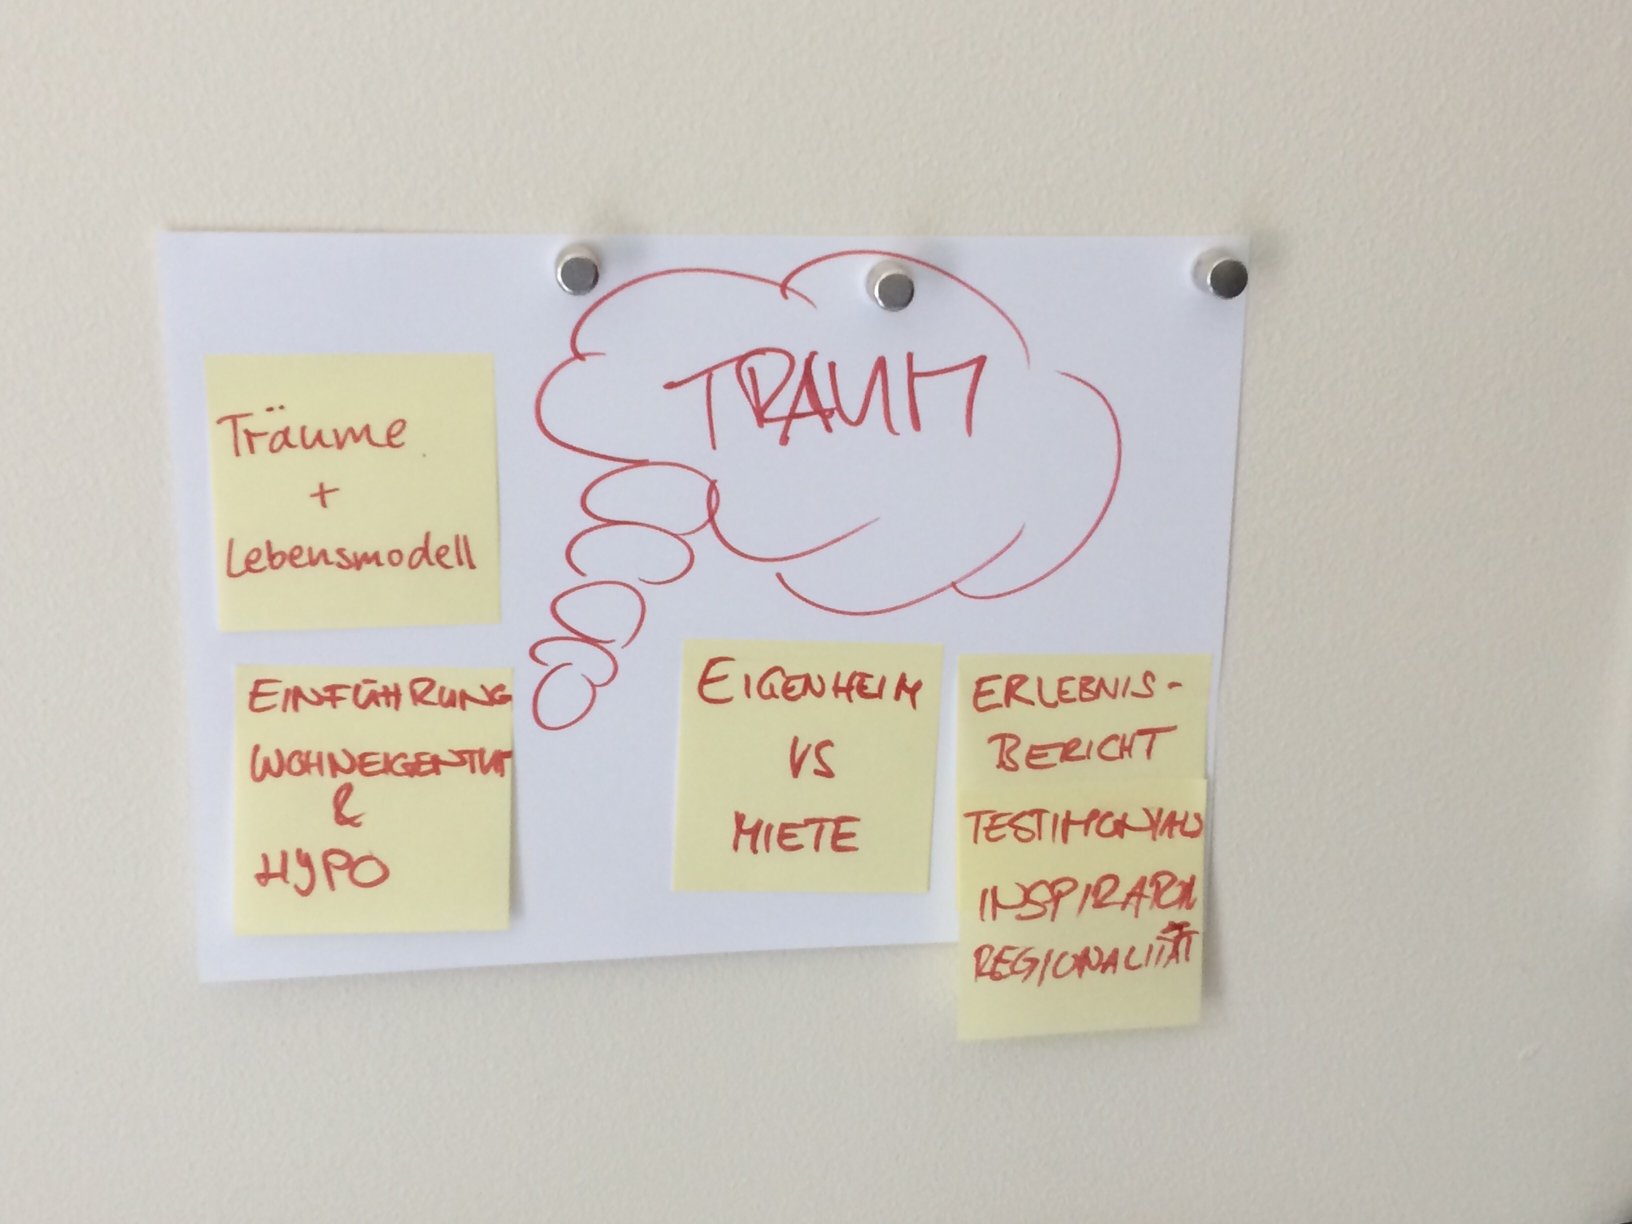 TRAUM
Träume
+
Lebensmodell
EINFÜHRUNG
WOHNEIGENTUM
&
HYPO
EIGENHEIM
VS
MIETE
ERLEBNIS-
BERICHT
TESTIMONIALS
INSPIRATION
REGIONALITÄT